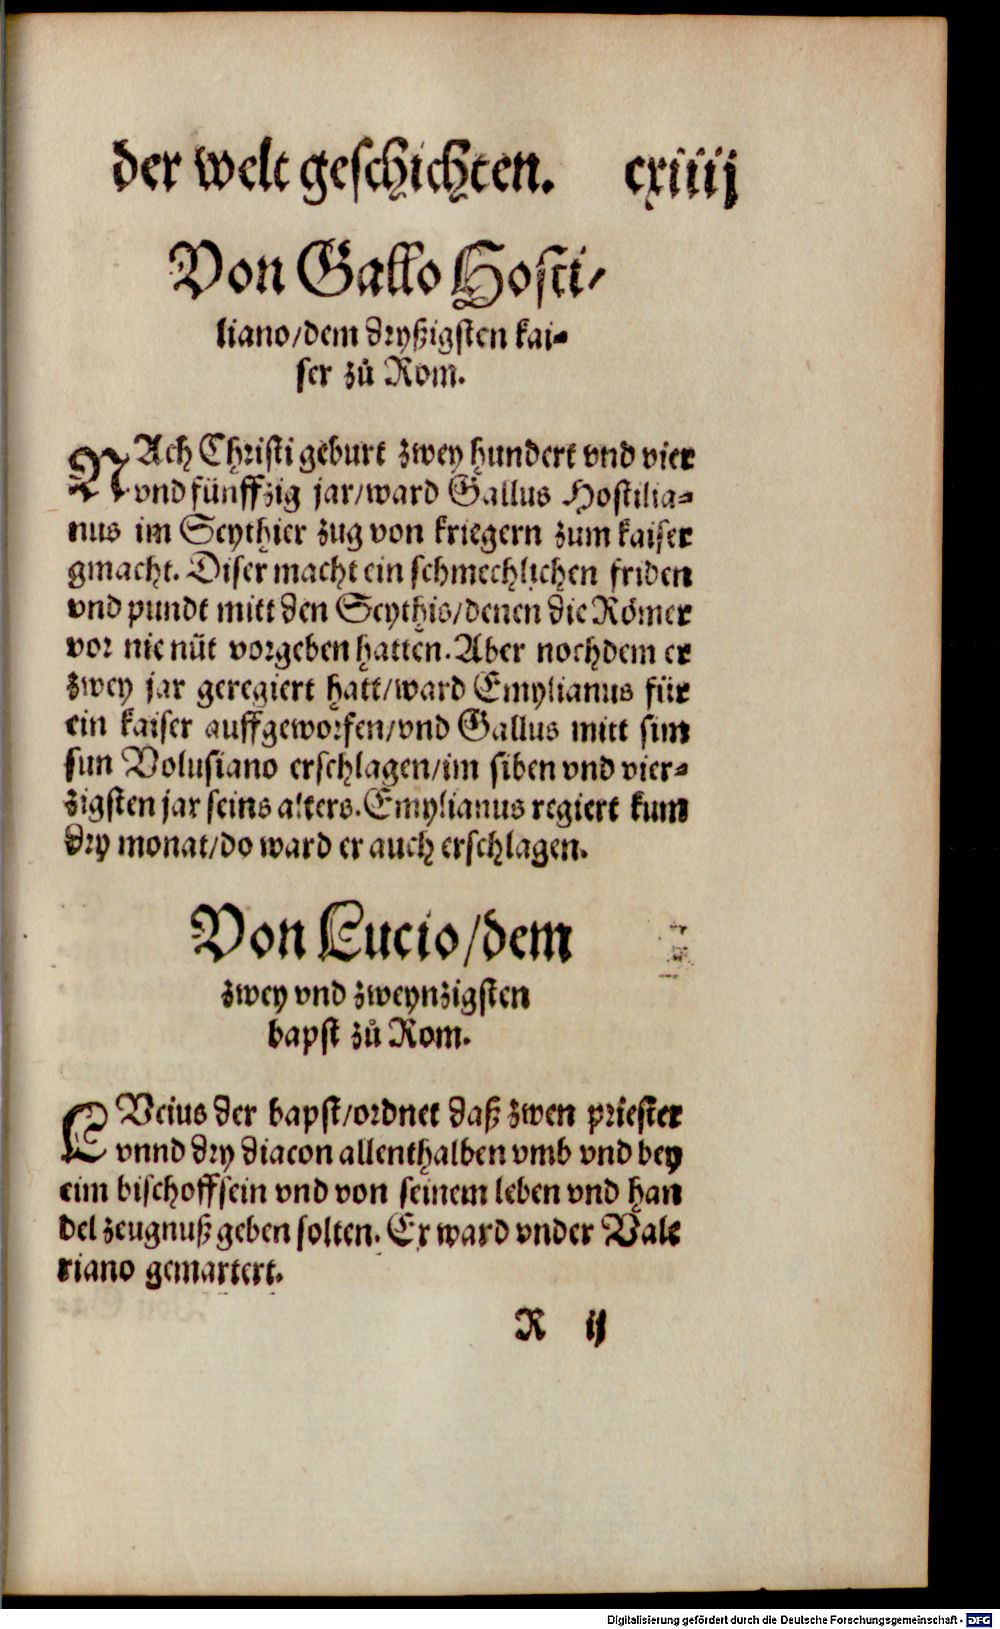 der welt geschichten. cxiiij
Von Gallo Hosti/
liano/dem dryßigsten kai-
ser zů Rom.
NAch Christi geburt zwey hundert vnd vier
vnd fünffzig jar/ward Gallus Hostilia-
nus im Scythier zug von kriegern zum kaiser
gmacht. Diser macht ein schmechlichen friden
vnd pundt mitt den Scythis/denen die Römer
vor nie nüt vorgeben hatten. Aber nochdem er
zwey jar geregiert hatt/ward Emylianus für
ein kaiser auffgeworfen/vnd Gallus mitt sim
sun Volusiano erschlagen/im siben vnd vier-
zigsten jar seins alters. Emylianus regiert kum
dry monat/do ward er auch erschlagen.
Von Lucio/dem
zwey vnd zweynzigsten
bapst zů Rom.
LVcius der bapst/ordnet daß zwen priester
vnnd dry diacon allenthalben vmb vnd bey
eim bischoff sein vnd von seinem leben vnd han
del zeugnuß geben solten. Er ward vnder Vale
riano gemartert.
R ij
Digitalisierung gefördert durch die Deutsche Forschungsgemeinschaft - DFG